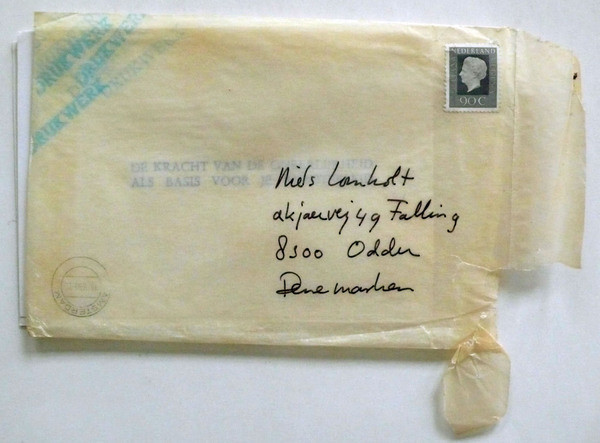 DRUKWERK
DRUKWERK
DRUKWERK
DRUKWERK
NEDERLAND
90C
DE KRACHT VAN DE
ALS BASIS VOOR
Niels Lomholt
akjaervej 49 Falling
8300 Odder
Denemarken
AMSTERDAM